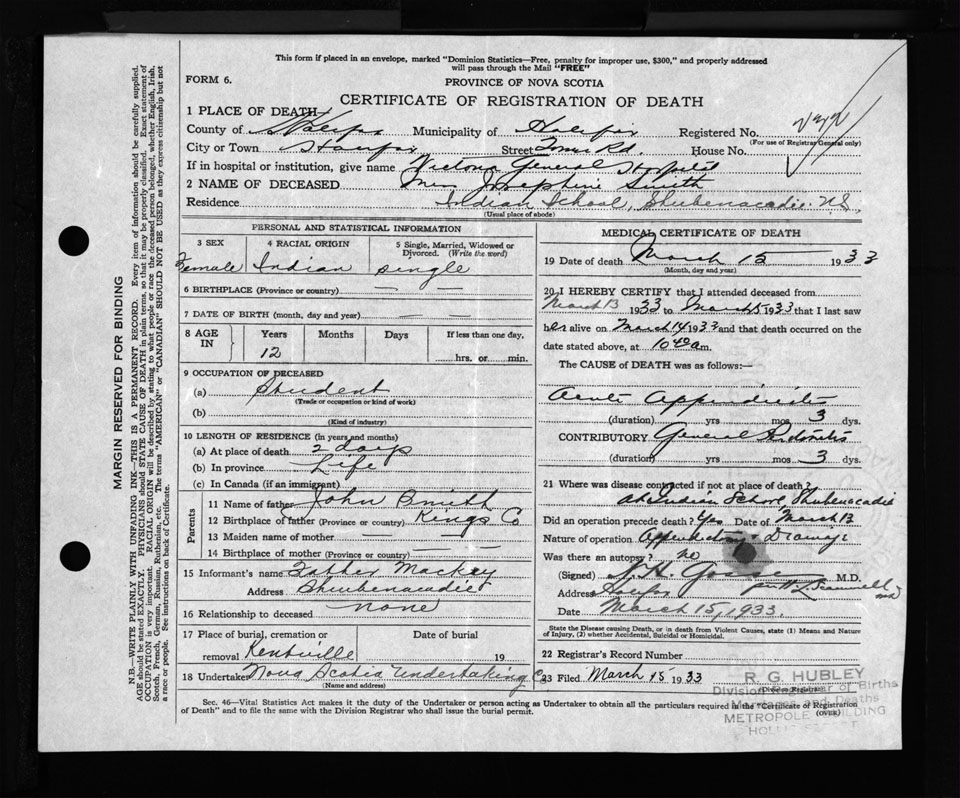 This form if placed in an envelope, marked "Dominion Statistics—Free, penalty for improper use, $300," and properly addressed
will pass through the Mail "FREE"
FORM 6.
PROVINCE OF NOVA SCOTIA
CERTIFICATE OF REGISTRATION OF DEATH
1 PLACE OF DEATH—
County of Halifax Municipality of Halifax Registered No.
(For use of Registrar General only)
City or Town Halifax Street Rd. House No.
If in hospital or institution, give name Victoria General Hospital
2 NAME OF DECEASED Josephine Smith
Residence Indian School, Shubenacadie N.S.
(Usual place of abode)
PERSONAL AND STATISTICAL INFORMATION
3 SEX 4 RACIAL ORIGIN 5 Single, Married, Widowed or Divorced. (Write the word)
Female Indian single
6 BIRTHPLACE (Province or country) — —
7 DATE OF BIRTH (month, day and year) — —
8 AGE IN Years Months Days If less than one day,
12 hrs. or min.
9 OCCUPATION OF DECEASED
(a) Student
(Trade or occupation or kind of work)
(b)
(Kind of industry)
10 LENGTH OF RESIDENCE (in years and months)
(a) At place of death 2 days
(b) In province Life
(c) In Canada (if an immigrant)
Parents
11 Name of father John Smith
12 Birthplace of father (Province or country) Kings Co
13 Maiden name of mother — — —
14 Birthplace of mother (Province or country) — —
15 Informant's name Father Mackey
Address Shubenacadie
16 Relationship to deceased none
17 Place of burial, cremation or Date of burial
removal Kentville 19
18 Undertaker Nova Scotia Undertaking Co
(Name and address)
MEDICAL CERTIFICATE OF DEATH
19 Date of death March 15 1933
(Month, day and year)
20 I HEREBY CERTIFY that I attended deceased from
March 13 1933 to March 15 1933 that I last saw
her alive on March 14 1933 and that death occurred on
date stated above, at 10 40 a.m.
The CAUSE of DEATH was as follows:—
Acute Appendicitis
(duration) yrs mos 3 dys.
CONTRIBUTORY General Peritonitis
(duration) yrs mos 3 dys.
21 Where was disease contracted if not at place of death?
at Indian School, Shubenacadie
Did an operation precede death? Yes Date of March 13
Nature of operation Appendectomy & Drainage
Was there an autopsy? no
(Signed) M.D.
Address Halifax
Date March 15, 1933.
State the Disease causing Death, or in death from Violent Causes, state (1) Means and Nature
of Injury, (2) whether Accidental, Suicidal or Homicidal.
22 Registrar's Record Number
23 Filed March 15 1933
(Division Registrar)
R. G. HUBLEY
Division Registrar of Births
Marriages and Deaths
METROPOLE BUILDING
HOLLIS
Sec. 46—Vital Statistics Act makes it the duty of the Undertaker or person acting as Undertaker to obtain all the particulars required in the "Certificate of Registration
of Death" and to file the same with the Division Registrar who shall issue the burial permit.
(OVER)
MARGIN RESERVED FOR BINDING
N.B.—WRITE PLAINLY WITH UNFADING INK—THIS IS A PERMANENT RECORD. Every item of information should be carefully supplied.
AGE should be stated EXACTLY. PHYSICIANS should STATE CAUSE OF DEATH in plain terms, so that it may be properly classified. Exact statement of
OCCUPATION is very important. RACIAL ORIGIN will be described by stating to what people or race the deceased person belonged, whether English, Irish,
Scotch, French, German, Russian, Ruthenian, etc. The terms "AMERICAN" or "CANADIAN" SHOULD NOT BE USED as they express citizenship but not
a race or people. See instructions on back of Certificate.